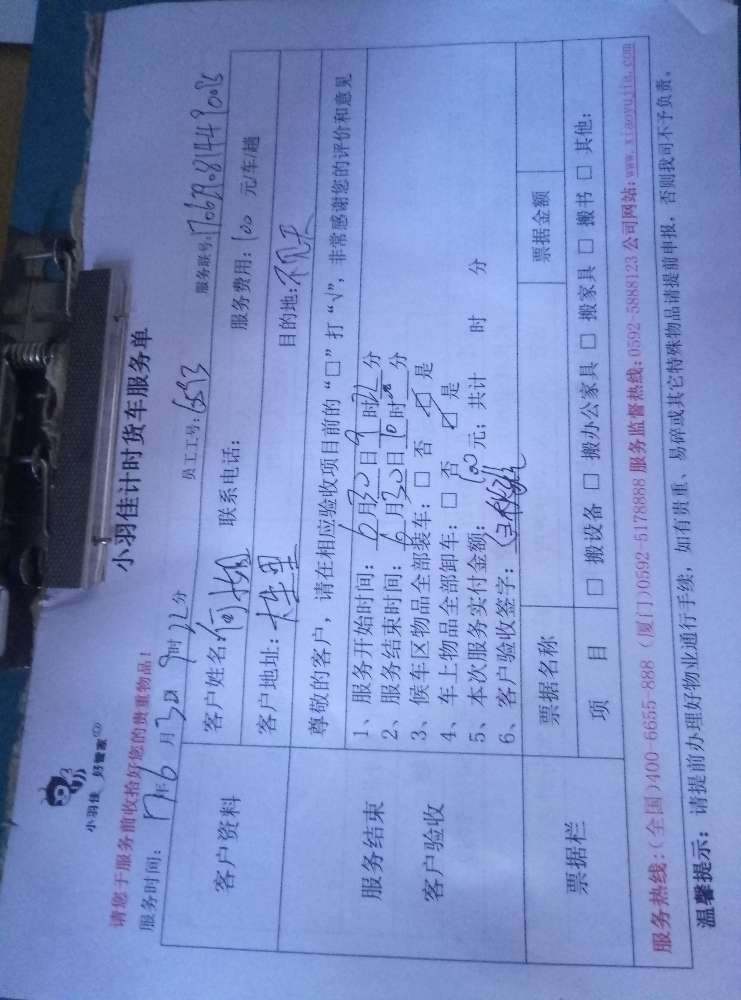 小羽佳 好管家
小羽佳计时货车服务单
请您于服务前收拾好您的贵重物品!
服务时间: 17年6月30日9时22分 员工工号: 服务联号:
客户资料
客户姓名:何小姐 联系电话: 服务费用:100元/车/趟
客户地址: 目的地:
服务结束
客户验收
尊敬的客户,请在相应验收项目前的“□”打“√”,非常感谢您的评价和意见
1、服务开始时间:6月30日9时22分
2、服务结束时间:6月30日10时分
3、候车区物品全部装车:□ 否 ☑ 是
4、车上物品全部卸车:□ 否 ☑ 是
5、本次服务实付金额:100元;共计 时 分
6、客户验收签字:
票据栏
票据名称 票据金额
项 目 □ 搬设备 □ 搬办公家具 □ 搬家具 □ 搬书 □ 其他:
服务热线:(全国)400-6655-888 (厦门)0592-5178888 服务监督热线:0592-5888123 公司网站:www.xiaoyujia.com
温馨提示:请提前办理好物业通行手续,如有贵重、易碎或其它特殊物品请提前申报,否则我司不予负责。